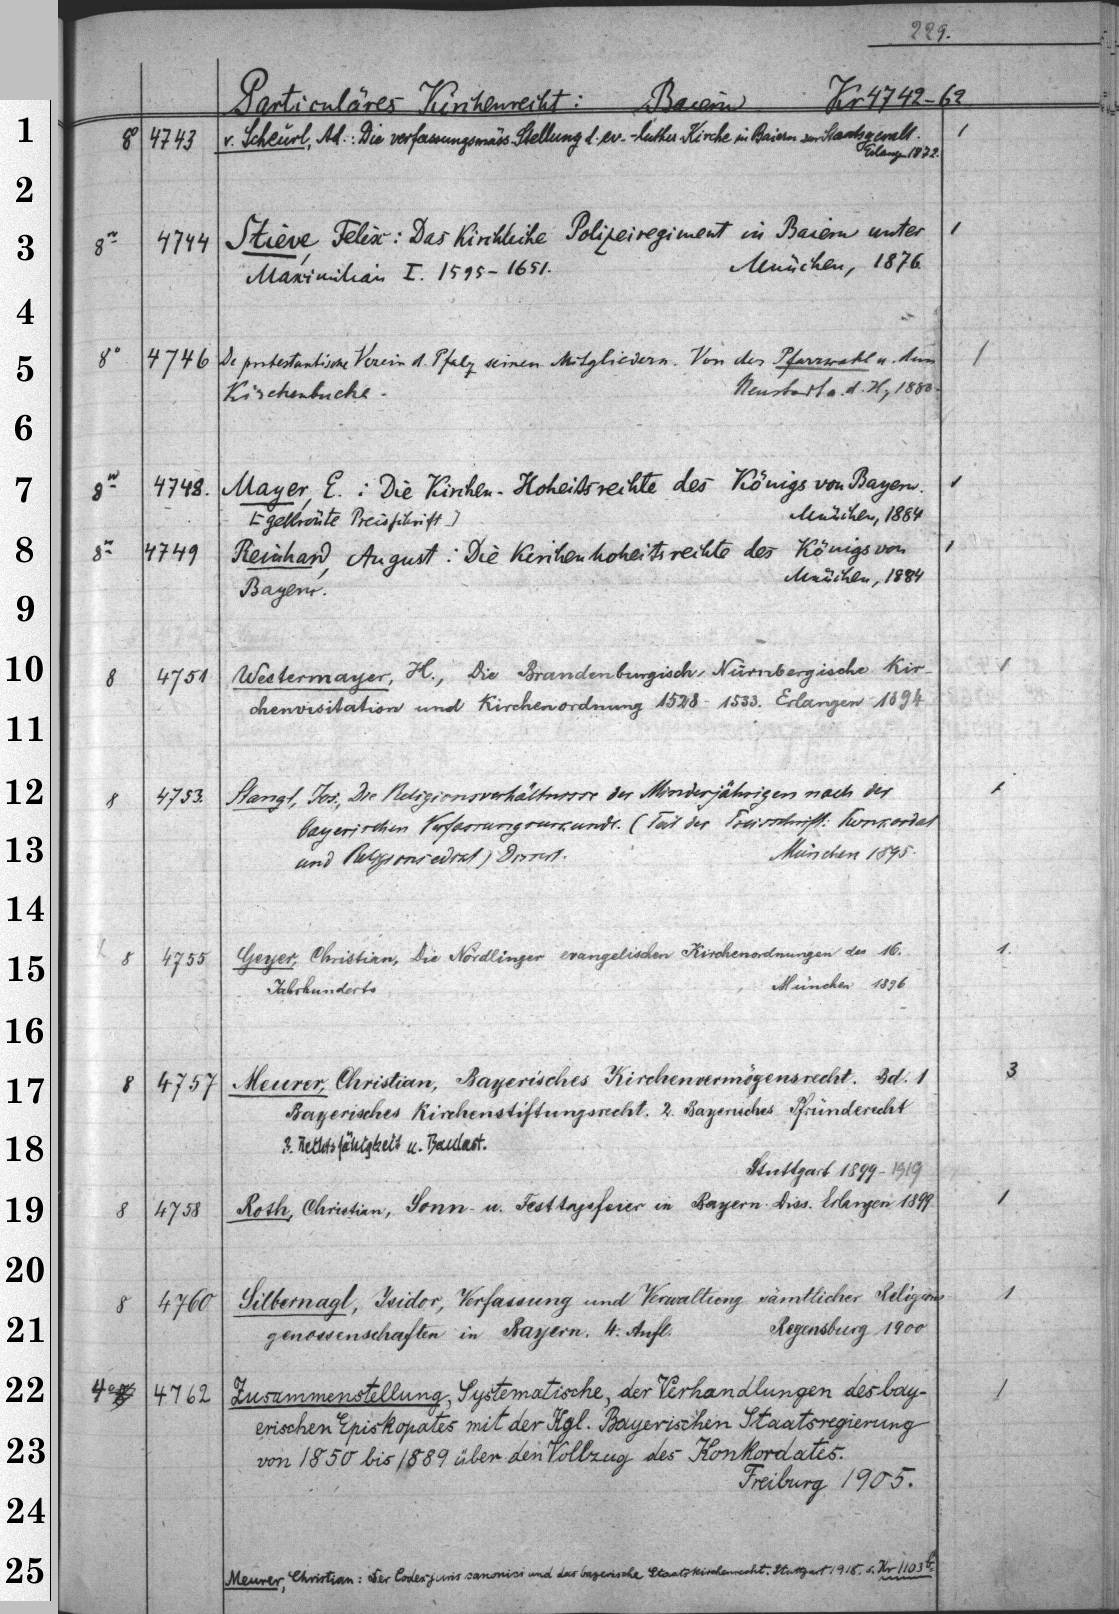 229.
Particuläres Kirchenrecht: Baiern Kr 4742-62
1 8° 4743 v. Scheurl, Ad.: Die verfassungsmäss. Stellung d. ev.-luther. Kirche in Baiern zur Staatsgewalt. 1
Erlangen 1872.
2
3 8° 4744 Stieve, Felix: Das kirchliche Polizeiregiment in Baiern unter 1
Maximilian I. 1595-1651. München, 1876
4
5 8° 4746 De protestantische Verein d. Pfalz seinen Mitgliedern. Von der Pfarrwahl u. dem 1
Kirchenbuche. Neustadt a. d. H, 1880.
6
7 8° 4748. Mayer, E.: Die Kirchen-Hoheitsrechte des Königs von Bayern. 1
[gekrönte Preisschrift] München, 1884
8 8° 4749 Reinhard, August: Die Kirchenhoheitsrechte des Königs von 1
Bayern. München, 1884
9
10 8 4751 Westermayer, H., Die Brandenburgisch-Nürnbergische Kir- 1
chenvisitation und Kirchenordnung 1528-1533. Erlangen 1894
11
12 8 4753. Stangl, Jos., Die Religionsverhältnisse der Minderjährigen nach der 1
bayerischen Verfassungsurkunde. (Teil der Preisschrift: Konkordat
13 und Religionsedikt) Dissert. München 1895.
14
15 8 4755 Geyer, Christian, Die Nördlinger evangelischen Kirchenordnungen des 16. 1.
Jahrhunderts München 1896
16
17 8 4757 Meurer, Christian, Bayerisches Kirchenvermögensrecht. Bd. 1 3
Bayerisches Kirchenstiftungsrecht. 2. Bayerisches Pfründerecht
18 3. Rechtsfähigkeit u. Baulast.
Stuttgart 1899-1919
19 8 4758 Roth, Christian, Sonn- u. Festtagsfeier in Bayern. Diss. Erlangen 1899 1
20
8 4760 Silbernagl, Isidor, Verfassung und Verwaltung sämtlicher Religions- 1
21 genossenschaften in Bayern. 4. Aufl. Regensburg 1900
22 4° 4762 Zusammenstellung, Systematische, der Verhandlungen des bay- 1
erischen Episkopates mit der Kgl. Bayerischen Staatsregierung
23 von 1850 bis 1889 über den Vollzug des Konkordates.
Freiburg 1905.
24
25 Meurer, Christian: Der Codex juris canonici und das bayerische Staatskirchenrecht. Stuttgart 1918. s. Kr 1103